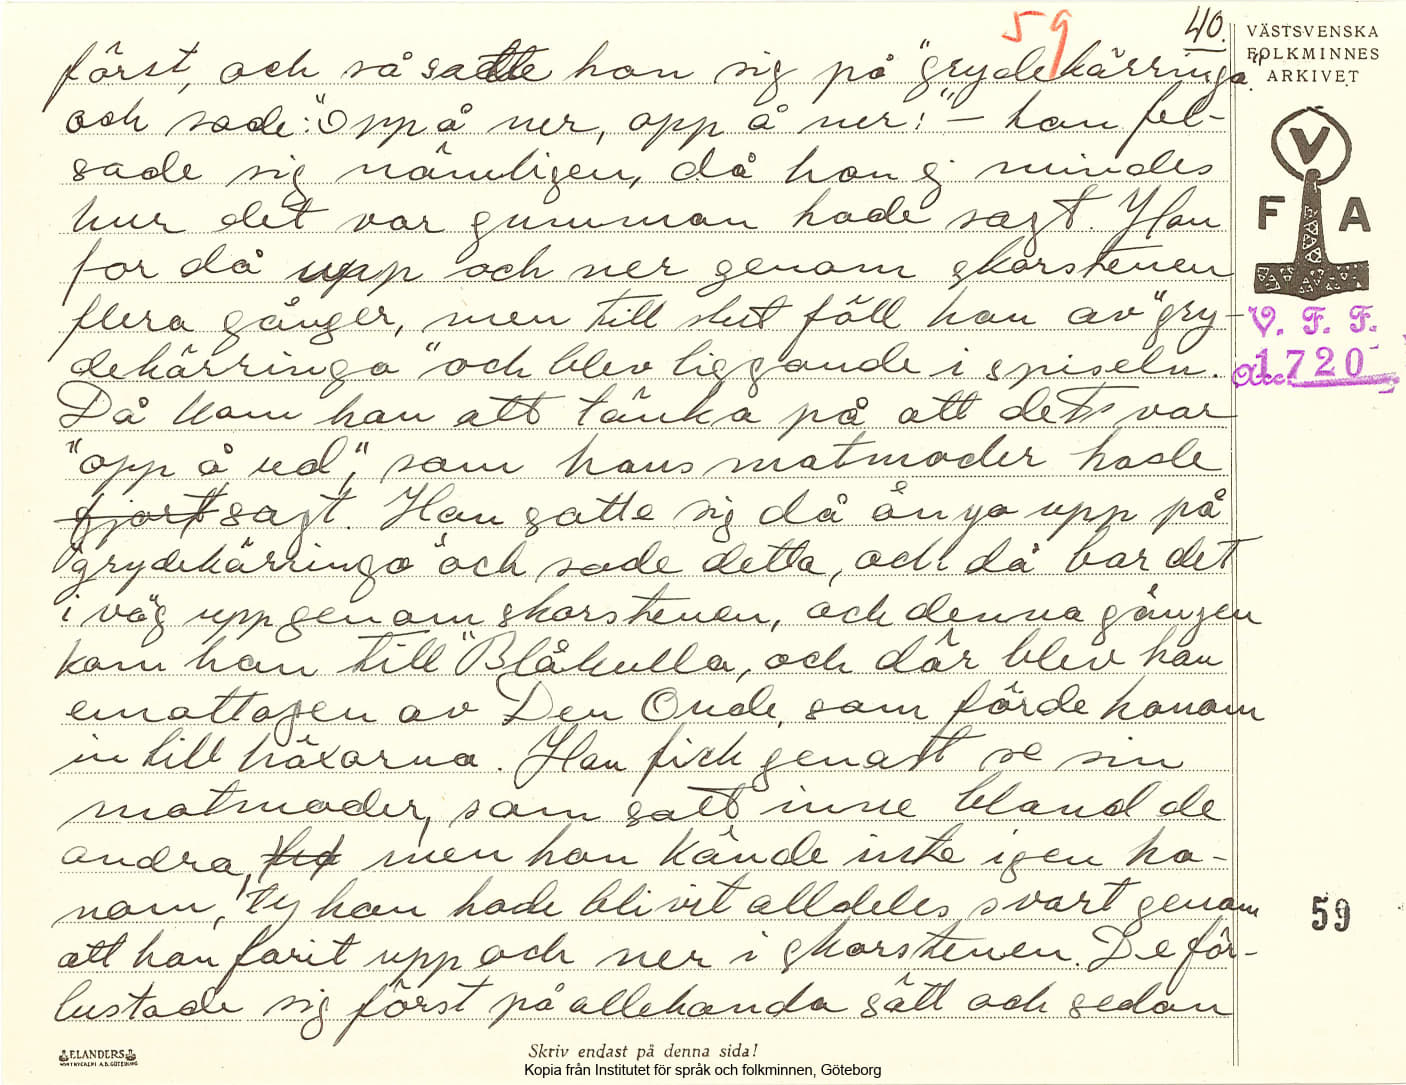 59
40.
VÄSTSVENSKA
FOLKMINNES
ARKIVET
V
F A
V. F. F.
Acc. 1720
först, och så satte han sig på "grydekärringa"
och sade: "Opp å ner, opp å ner!" – han fel-
sade sig nämligen, då han ej mindes
hur det var gumman hade sagt. Han
for då upp och ner genom skorstenen
flera gånger, men till slut föll han av "gry-
dekärringa" och blev liggande i spiseln.
Då kom han att tänka på att det var
"opp å ud", som hans matmoder hade
gjort sagt. Han satte sig då ånyo upp på
"grydekärringa" och sade detta, och då bar det
i väg upp genom skorstenen, och denna gången
kom han till "Blåkulla, och där blev han
emottagen av Den Onde, som förde honom
in till häxorna. Han fick genast se sin
matmoder, som satt inne bland de
andra, men hon kände inte igen ho-
nom, ty han hade blivit alldeles svart genom
att han farit upp och ner i skorstenen. De för-
lustade sig först på allehanda sätt och sedan
59
ELANDERS
BOKTRYCKERI A.B. GÖTEBORG
Skriv endast på denna sida!
Kopia från Institutet för språk och folkminnen, Göteborg